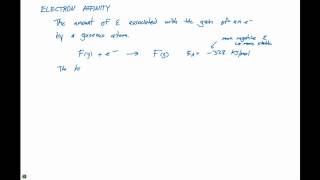 ELECTRON AFFINITY
The amount of E associated with the gain of an e-
by a gaseous atom.
more negative E
is more stable
F(g) + e- → F(g) EA = -328 KJ/mol
The